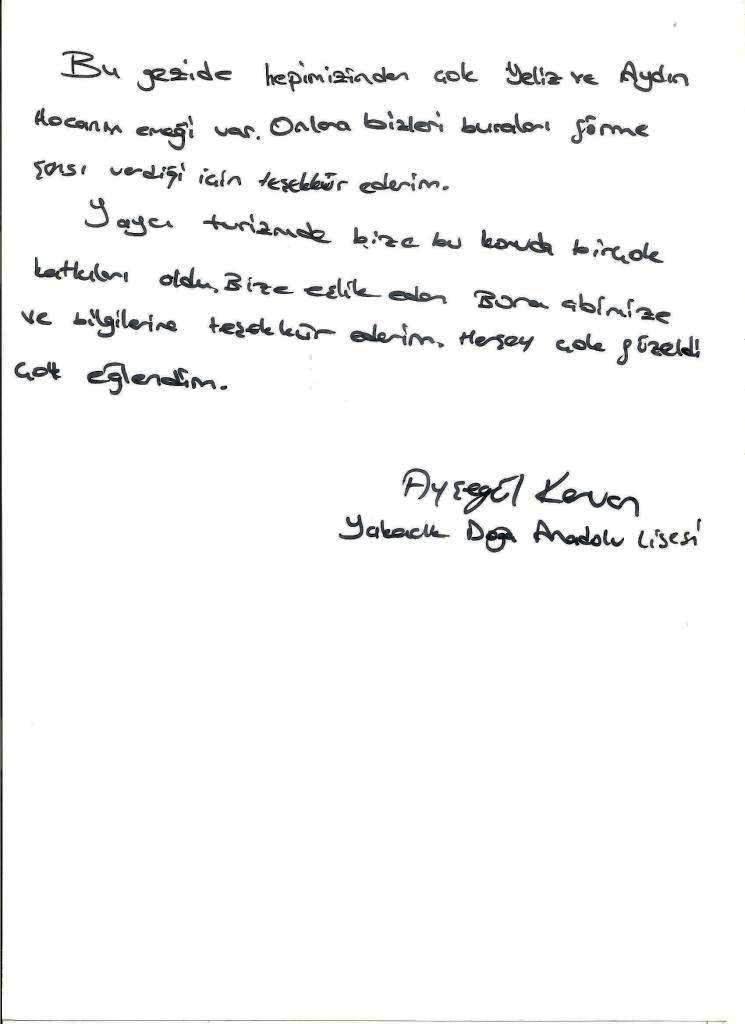 Bu gezide hepimizinden çok Yeliz ve Aydın
Hocanın emeği var. Onlara bizleri buraları görme
şansı verdiği için teşekkür ederim.
Yaycı turizmde bize bu konuda birçok
katkıları oldu. Bize eşlik eden Bora abimize
ve bilgilerine teşekkür ederim. Herşey çok güzeldi
çok eğlendim.
Ayşegül
Yakacık Doğa Anadolu Lisesi